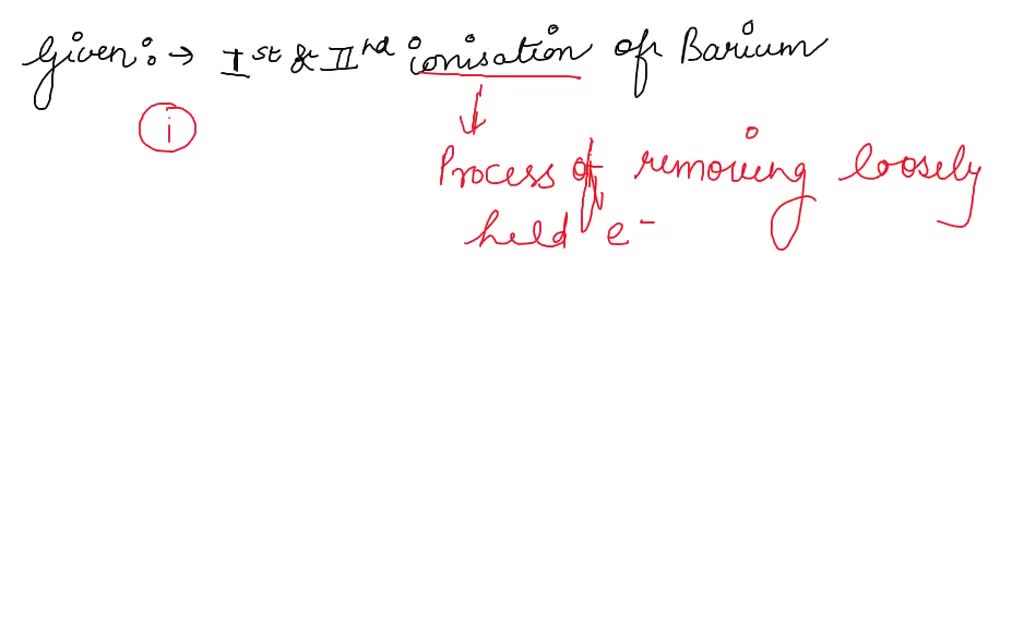 Given:→ Ist & IInd ionisation of Barium
i
Process of removing loosely
held e-